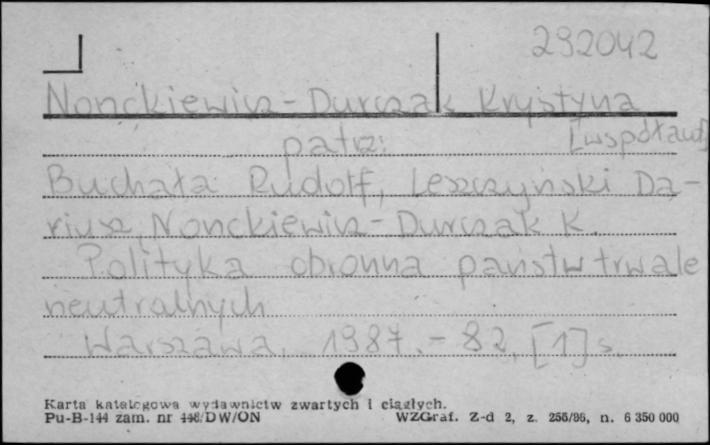 292042
Nonckiewicz-Durczak Krystyna
patrz: [współaut]
Buchała Rudolf, Leszczyński Da-
riusz, Nonckiewicz-Durczak K.
Polityka obronna państw trwale
neutralnych
Warszawa, 1987. - 82, [1] s.
Karta katalogowa wydawnictw zwartych i ciągłych.
Pu-B-144 zam. nr 448/DW/ON WZGraf. Z-d 2, z. 256/86, n. 6 350 000